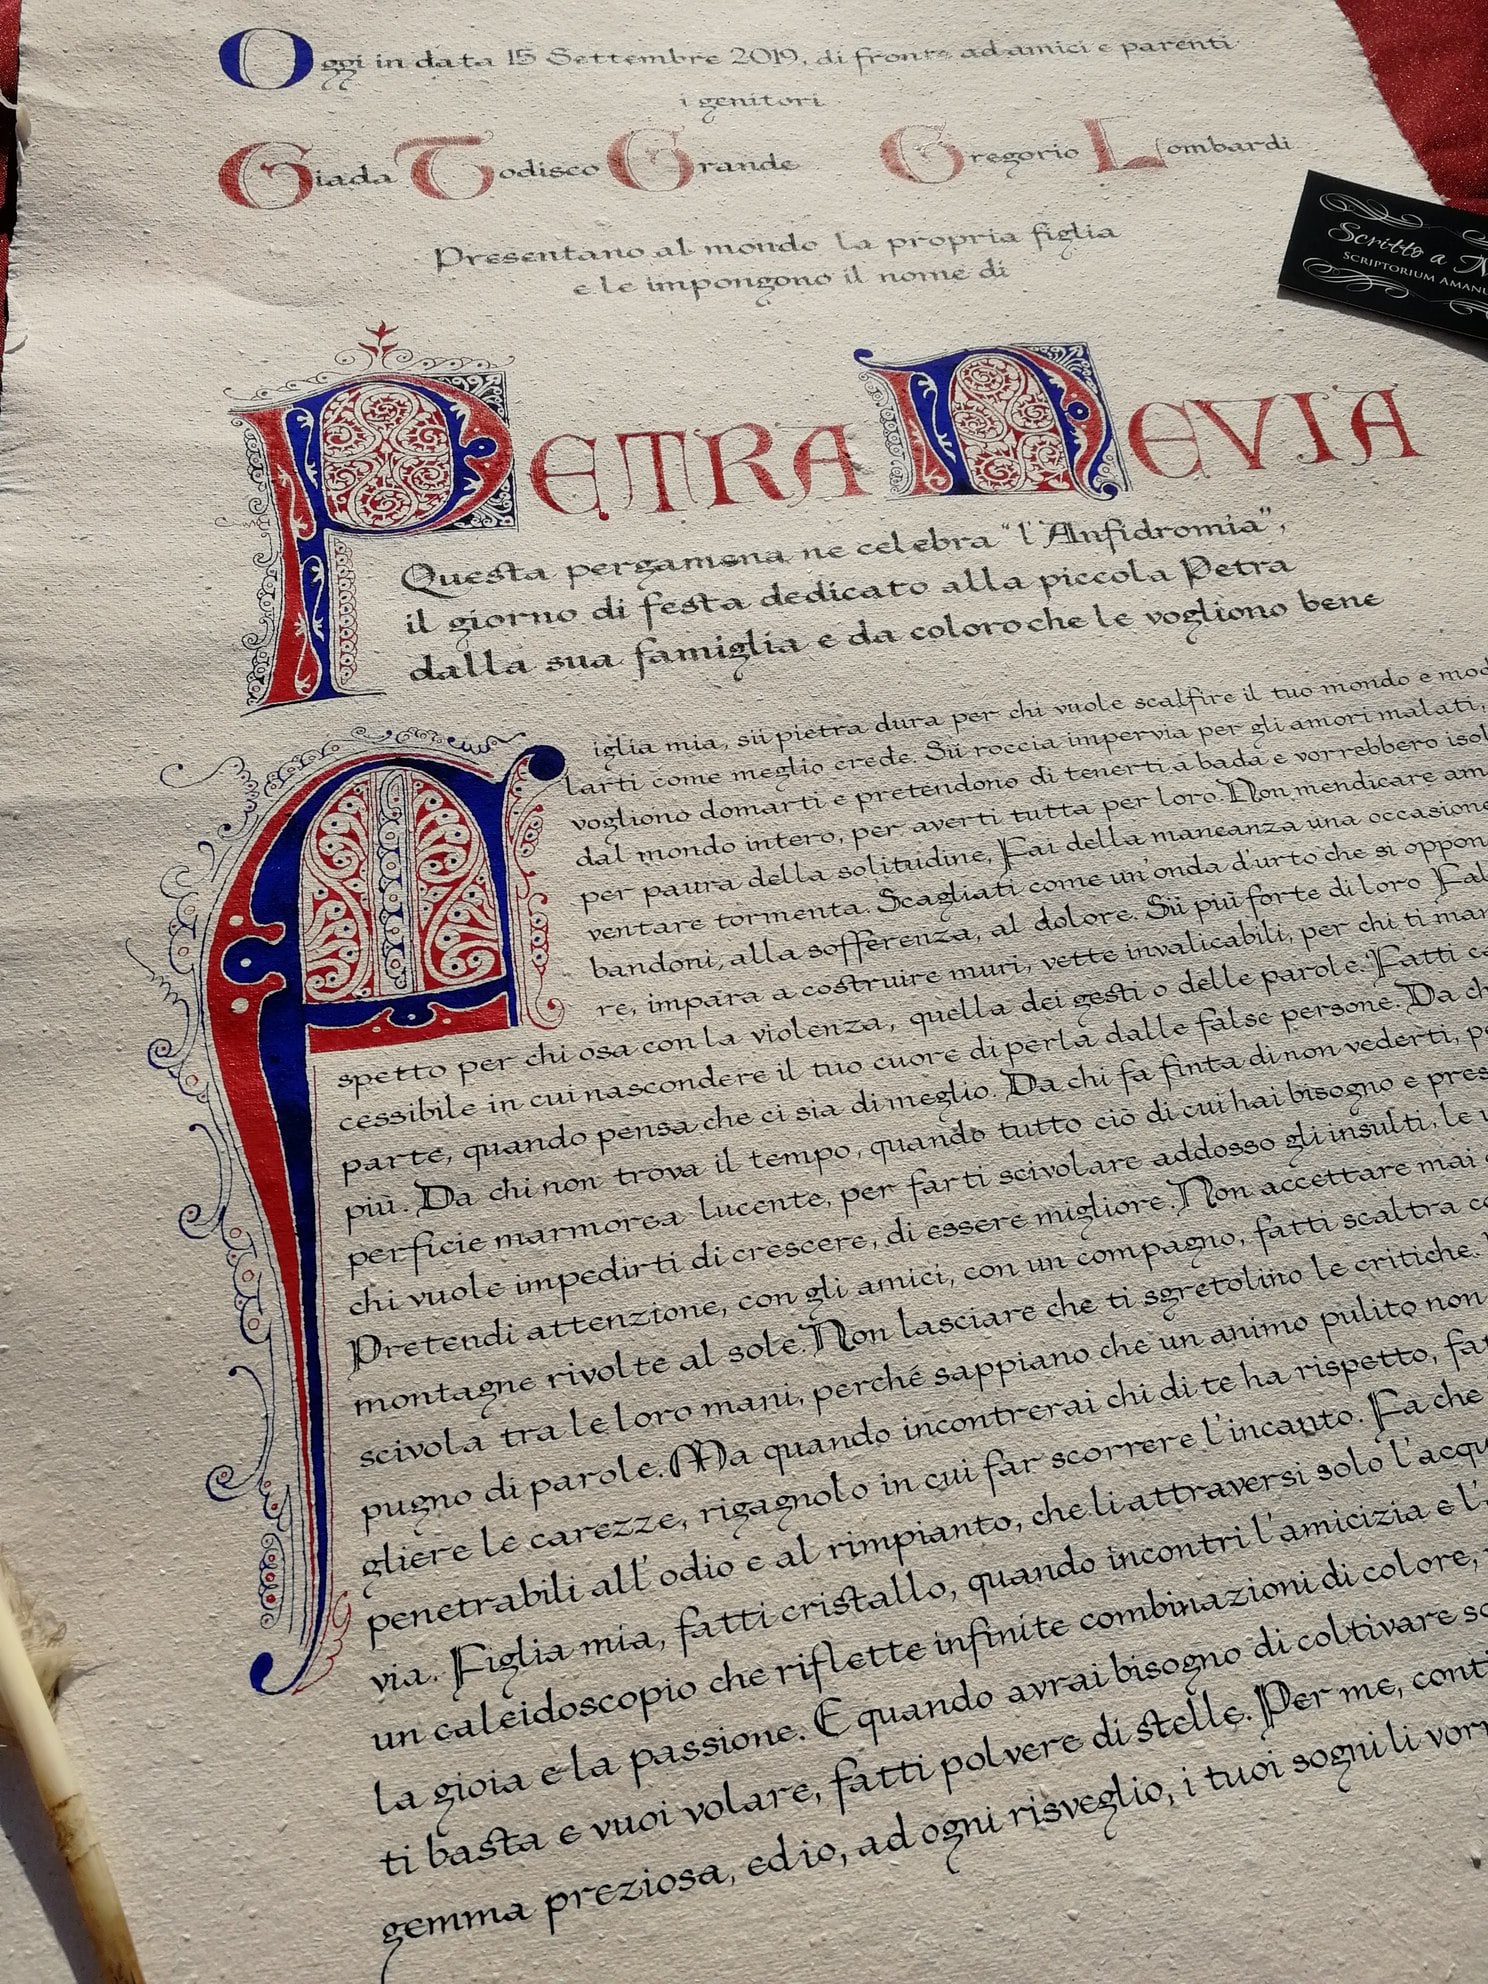 Oggi in data 15 Settembre 2019, di fronte ad amici e parenti
i genitori
Giada Todisco Grande Gregorio Lombardi
Presentano al mondo la propria figlia
e le impongono il nome di
PETRA NEVIA
Questa pergamena ne celebra "l'Anfidromia",
il giorno di festa dedicato alla piccola Petra
dalla sua famiglia e da coloro che le vogliono bene
Figlia mia, sii pietra dura per chi vuole scalfire il tuo mondo e mod
larti come meglio crede. Sii roccia impervia per gli amori malati,
vogliono domarti e pretendono di tenerti a bada e vorrebbero isol
dal mondo intero, per averti tutta per loro. Non mendicare am
per paura della solitudine, Fai della mancanza una occasione
ventare tormenta. Scagliati come un'onda d'urto che si oppon
bandoni, alla sofferenza, al dolore. Sii più forte di loro Fal
re, impara a costruire muri, vette invalicabili, per chi ti man
spetto per chi osa con la violenza, quella dei gesti o delle parole. Fatti ca
cessibile in cui nascondere il tuo cuore di perla dalle false persone. Da ch
parte, quando pensa che ci sia di meglio. Da chi fa finta di non vederti, p
più. Da chi non trova il tempo, quando tutto ciò di cui hai bisogno e pres
perficie marmorea lucente, per farti scivolare addosso gli insulti, le
chi vuole impedirti di crescere, di essere migliore. Non accettare mai
Pretendi attenzione, con gli amici, con un compagno, fatti scaltra co
montagne rivolte al sole. Non lasciare che ti sgretolino le critiche.
scivola tra le loro mani, perché sappiano che un animo pulito non
pugno di parole. Ma quando incontrerai chi di te ha rispetto, fa
gliere le carezze, rigagnolo in cui far scorrere l'incanto. Fa che
penetrabili all'odio e al rimpianto, che li attraversi solo l'acqu
via. Figlia mia, fatti cristallo, quando incontri l'amicizia e l'
un caleidoscopio che riflette infinite combinazioni di colore,
la gioia e la passione. E quando avrai bisogno di coltivare so
ti basta e vuoi volare, fatti polvere di stelle. Per me, cont
gemma preziosa, ed io, ad ogni risveglio, i tuoi sogni li vorr
Scritto a
SCRIPTORIUM AMANU